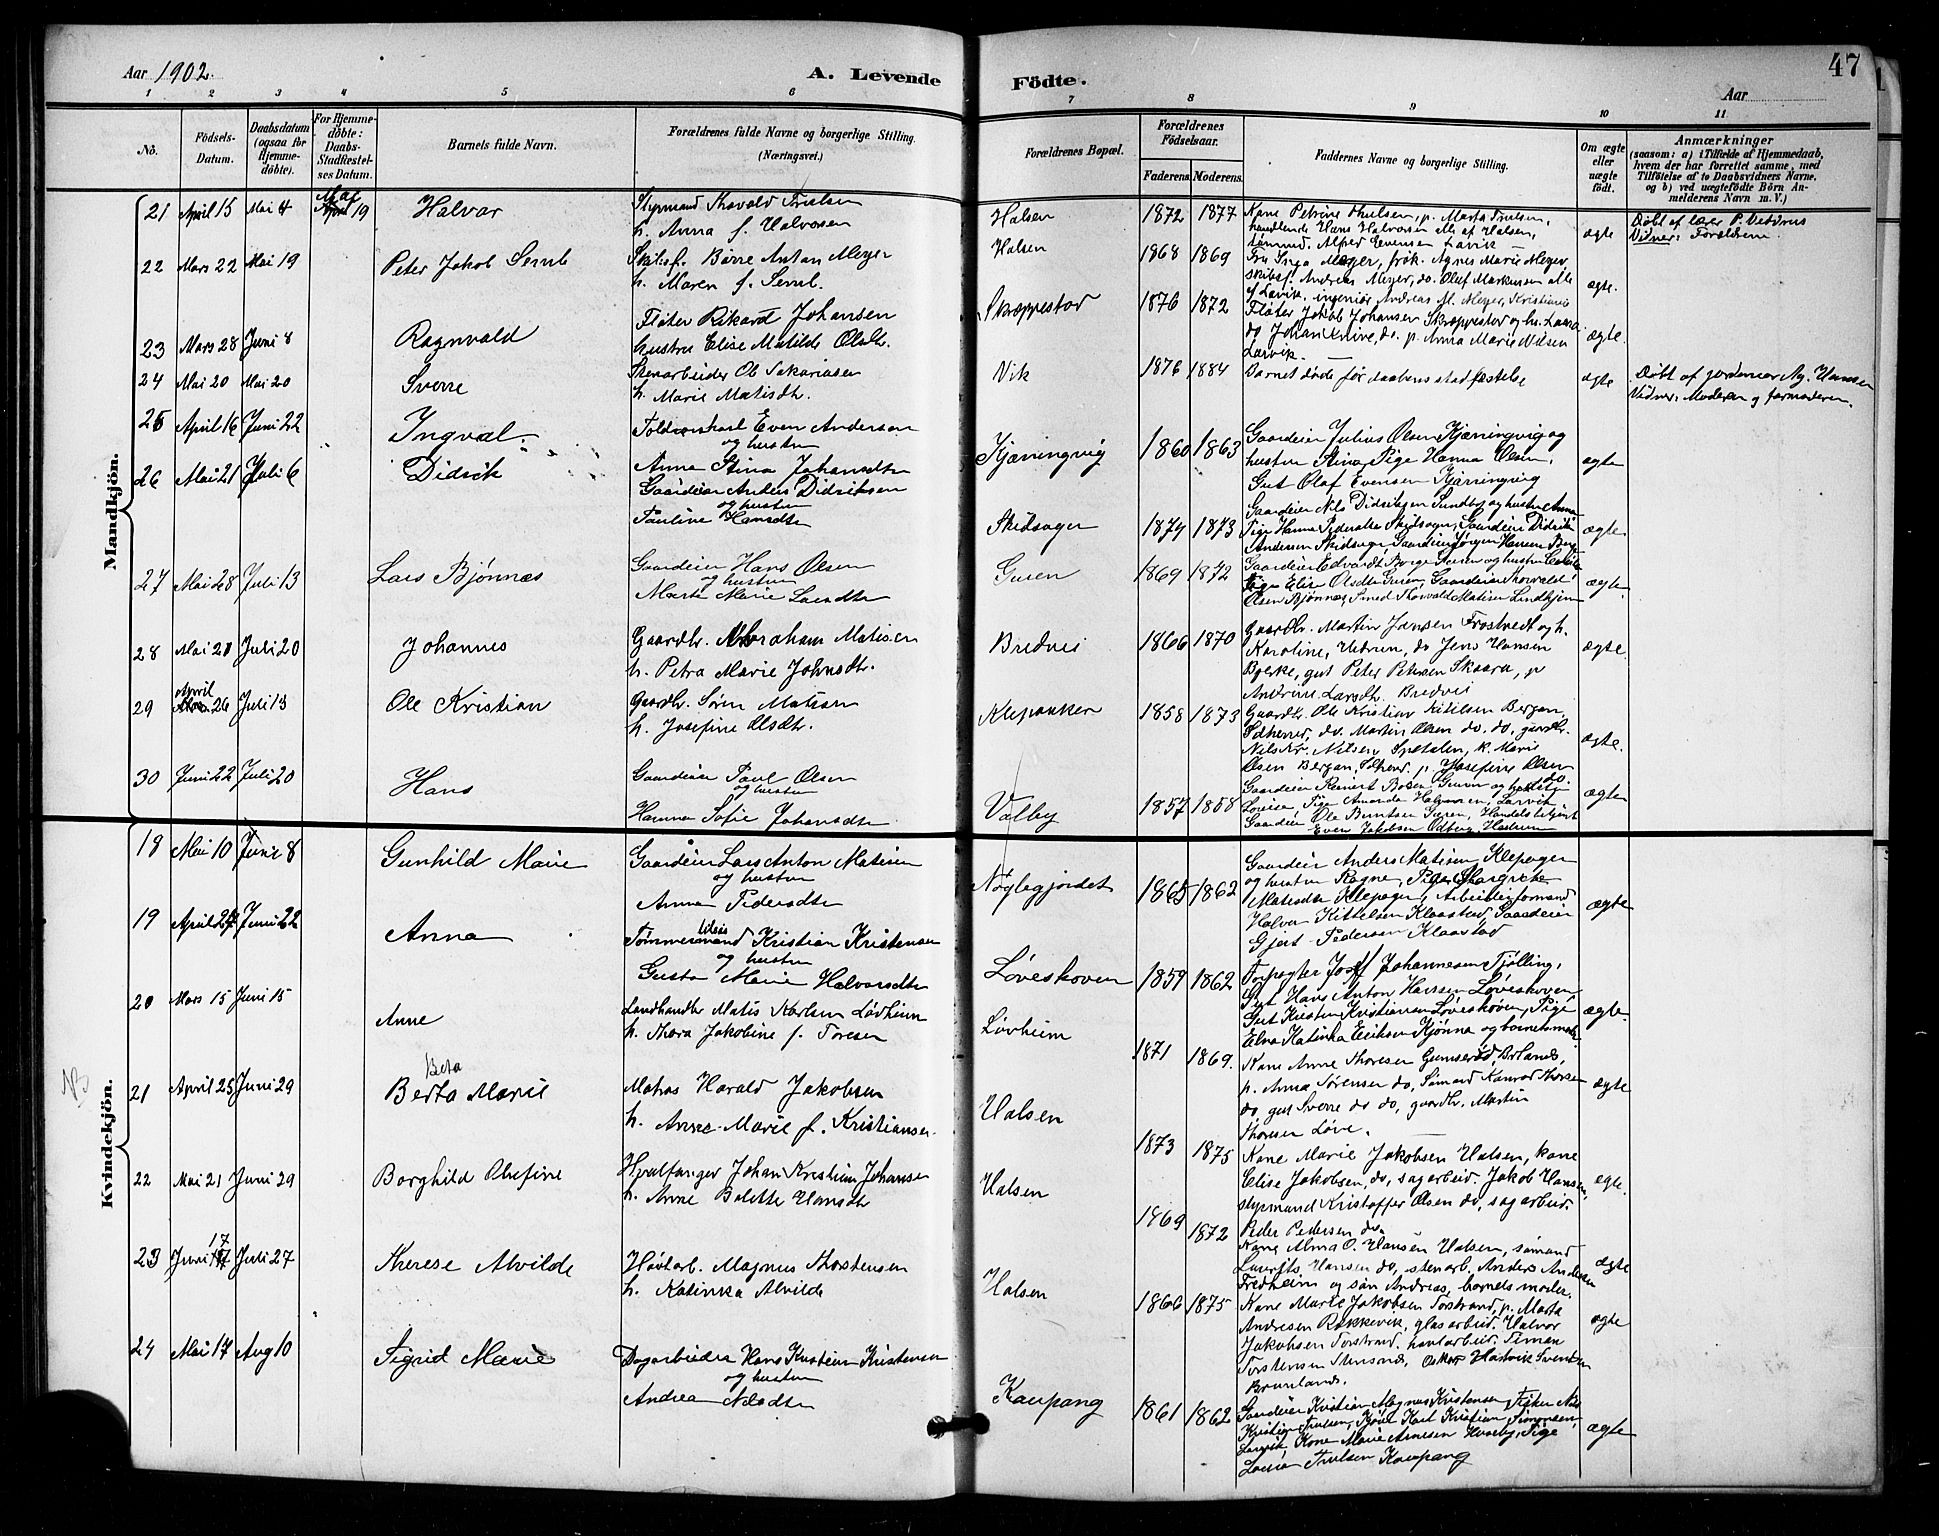 Aar 1902.
A. Levende
Födte.
47
Aar
1 2 3 4 5 6 7 8 9 10 11
No.
Födsels-
Datum.
Daabsdatum
(ogsaa for
Hjemme-
døbte).
For Hjemme-
døbte:
Daabs-
Stadfæstel-
ses Datum.
Barnets fulde Navn.
Forældrenes fulde Navne og borgerlige Stilling.
(Næringsvei.)
Forældrenes Bopæl.
Forældrenes
Födselsaar.
Faderens.
Moderens.
Faddernes Navne og borgerlige Stilling.
Om ægte
eller
uægte
født.
Anmærkninger
(saasom: a) i Tilfælde af Hjemmedaab,
hvem der har forrettet samme, med
Tilföielse af to Daabsvidners Navne,
og b) ved uægtefödte Börn An-
melderens Navn m. V.)
Mandkjön.
21 April 15 Mai 4 Mai 19 Halvar
Styrmand Thorvald Trulsen
h. Anna f. Halvorsen
Halsen 1872 1877
Kone Petrine Thulsen, p. Marta Trulsen,
handlende Hans Halvorsen alle af Halsen,
tømmd. Alfred Evensen Larvik
ægte
Døbt af lærer P. Vedhus
Vidner: Forældrene
22 Mars 22 Mai 19 Peter Jakob Semb
Skibsf. Børre Anton Meyer
h. Maren f. Semb.
Halsen 1868 1869
Fru Inga Meyer, frøk. Agnes Marie Meyer
skibsf. Andreas Meyer, do. Oluf Markussen alle
af Larvik, ingeniør Andreas M. Meyer, Kristiania
ægte.
23 Mars 28 Juni 8 Ragnvald
Fløter Rikard Johansen
hustru Elise Matilde Olsdtr.
Skreppestad 1876 1872
Fløter Jakob Johansen Skreppestad og hu. Laura
do Johan Knive, do. p. Anna Marie Nilsen
Larvik.
ægte.
24 Mai 20 Mai 20 Sverre
Stenarbeider Ole Sakariasen
h. Marie Matisdtr.
Vik 1876 1884
Barnet døde før daabens stadfæstelse
ægte
Døbt af jordemor Ag. Hansen
Vidner: Moderen og farmoderen.
25 April 16 Juni 22 Ingval
Toldrorskarl Even Andersen
og hustru
Anna Stina Johansdtr
Kjæringvig 1860 1863
Gaardeier Julius Olsen Kjæringvig og
hustru Stina, Pige Hanna Olsen,
Gut Olaf Evensen Kjæringvig
ægte
26 Mai 21 Juli 6 Didrik
Gaardeier Anders Didriksen
og hustru
Pauline Hansdtr
Skidsager 1874 1873
Gaardeier Nils Didriksen Sundby og hustru Anna
Pige Hanna Pedersdtr Skidsager, Gaardeier Didrik
Andersen Skidsager, Gaardeier Jørgen Hansen Berg
ægte
27 Mai 28 Juli 13 Lars Bjønnes
Gaardeier Hans Olsen
og hustru
Marte Marie Larsdtr
Guren 1869 1872
Pige Elise Olsdtr Guren, Gaardeier Thorvald
Olsen Bjønnes, Smed Thorvald Matisen Lindhjem
ægte
28 Mai 21 Juli 20 Johannes
Gaardbr. Abraham Matisen
h. Petra Marie Johnsdtr.
Bredvei 1866 1870
Gaardbr. Martin Jensen Frostvedt og h.
Karoline, Uetrum, do Jens Hansen
Bjerke, gut Peter Petersen Skaara, p
Andrine Larsdtr. Bredvei
ægte
29 April 26 Juli 13 Ole Kristian
Gaardbr. Søren Matisen
h. Josefine Olsdtr.
Klepaaker 1858 1873
Gaardbr. Ole Kristian Kittilsen Bergan,
Sdherred, do. Martin Olsen do, do, gaardbr.
Nils Kr. Nilsen Spetalen, k. Marie
Olsen Bergan, Sdherd. p. Josefine Olsen
do.
ægte.
30 Juni 22 Juli 20 Hans
Gaardeier Paul Olsen
og hustru
Hanna Sofie Johansdtr
Valby 1857 1858
Lovise, Pige Amanda Halvorsen, Larvik
Gaardeier Ole Berntsen Guren, Handelsbetjent
Even Jakobsen Odberg, Hedrum
ægte
Kvindekjön.
18 Mai 10 Juni 8 Gunhild Marie
Gaardeier Lars Anton Matisen
og hustru
Anna Pedersdtr
Nøglegjordet 1865 1862
Gaardeier Anders Matisen Klepager
og hustru Ragne, Pige Margrete
Matisdtr Klepager, Arbeiderformand
Halvor Kittelsen Klaastad, Gaardeier
Gjert Pedersen Klaastad
ægte
19 April 27 Juni 22 Anna
Tømmermand Kristian Kristensen
og hustru
Gusta Marie Halvorsdtr
Løveskoven 1859 1862
Forpagter Josef Johannesen Tjølling,
Gut Hans Anton Hansen Løveskoven
Gut Kristen Kristiansen Løveskoven, Pige
Elna Katinka Eriksen Kjønna og barnets moder
ægte
20 Mars 15 Juni 15 Anne
Landhandler Matis Karlsen Løvheim
h. Thora Jakobine f. Toresen
Løvheim 1871 1869.
Kone Anne Thoresen Gumserød, Brlands,
p. Anna Sørensen do, Sømand Konrad Thorsen
do, gut Sverre do do, gaardbr. Martin
Thoresen Løve.
ægte
NB
21 April 25 Juni 29 Berta Marie
Beta
Matros Harald Jakobsen
h. Anne Marie f. Kristiansen
Halsen 1873 1875
Kone Marie Jakobsen Halsen, kone
Elise Jakobsen, do, sagarbeid. Jakob Hansen,
styrmand Kristoffer Olsen do, sagarbeid.
Peder Pedersen do
ægte.
22 Mai 21 Juni 29 Borghild Olefine
Hvalfanger Johan Kristian Johansen
h. Anne Bolette Hansdtr
Halsen 1869 1872
Kone Alma O. Hansen Halsen, sømand
Laurits Hansen do, stenarb. Anders Andersen
Fredheim og søn Andreas, barnets moder.
ægte
23 Juni 17 Juli 27 Therese Alvilde
Høvlarb. Magnus Thorstensen
h. Katinka Alvilde
Halsen 1866 1875
Kone Marie Jakobsen Torstrand, p. Marta
Andresen Rækkevik, glasarbeid. Halvor
Jakobsen Torstrand, høvlarbeid. Timan
Torstensen Stensnes, Oskar Hartvik Svendsen
Brunlanes.
ægte
24 Mai 17 Aug 10 Sigrid Marie
Dagarbeider Hans Kristian Kristensen
og hustru
Andrea Nilsdtr
Kaupang 1861 1862
Gaardeier Kristian Magnus Kristensen, Fisker Nils
Kristian Trulsen, Karl Kristian Simonsen,
Larvik, Kone Marie Arnesen Huseby, Pige
Lovisa Trulsen Kaupang
ægte